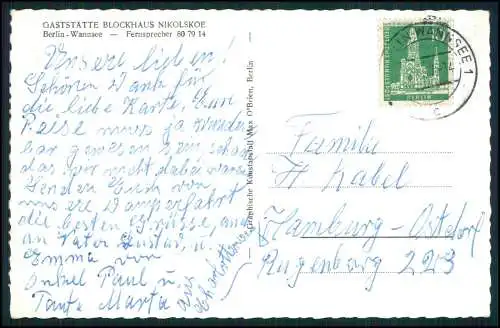 GASTSTÄTTE BLOCKHAUS NIKOLSKOE
Berlin-Wannsee — Fernsprecher 80 79 14
Unsere lieben!
Schönen Dank für
die liebe Karte, Eure
Reise muss ja wunder
bar gewesen sein schade
das wir nicht dabei waren
Senden Euch von
unsere Dampferfahrt
die besten Grüsse, auch
an Vater Gustav, u.
Emma von
Onkel Paul u
Tante Marta aus
Charlottenburg
Graphische Kunstanstalt Max O'Brien, Berlin.
WANNSEE 1
DEUTSCHE BUNDESPOST
BERLIN
Familie
H Label
Hamburg-Osdorf
Rugenbarg 223